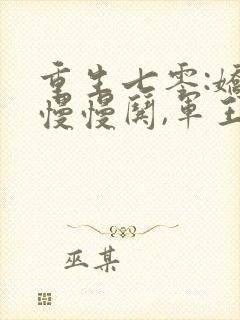 重生七零:嬌
慢慢闖,軍王
巫某